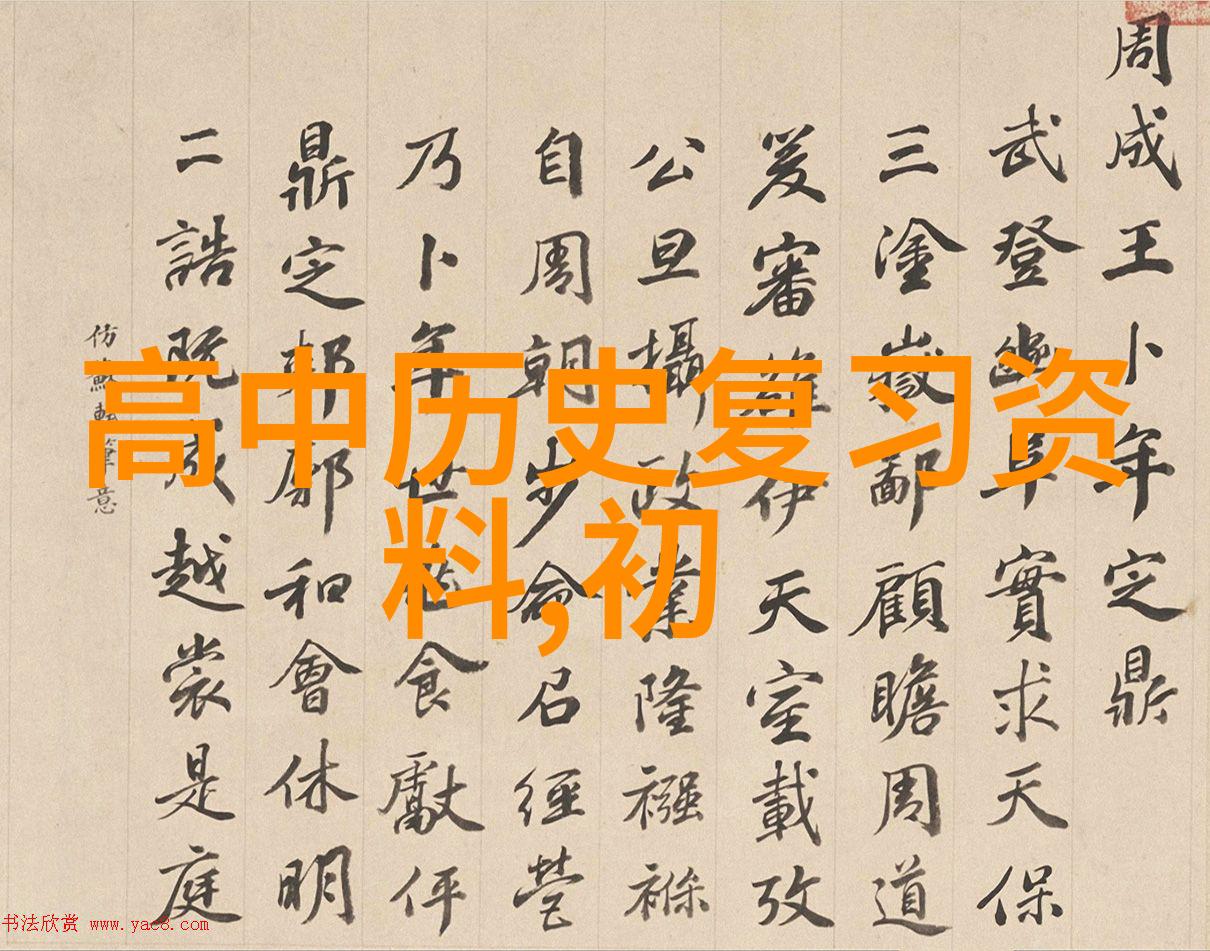 高中历史复习资
料,初
周成王卜年定鼎
武登豳阜實求天保
三塗嶽鄙顧瞻周道
爰審雒伊天室載攷
公旦攝政業隆襁褓
自周朝步命召經營
乃卜年世食獻伻
鼎定郟鄏和會休明
二誥既成越裳是庭
仿蘇軾筆意
书法欣赏 www.yac8.com